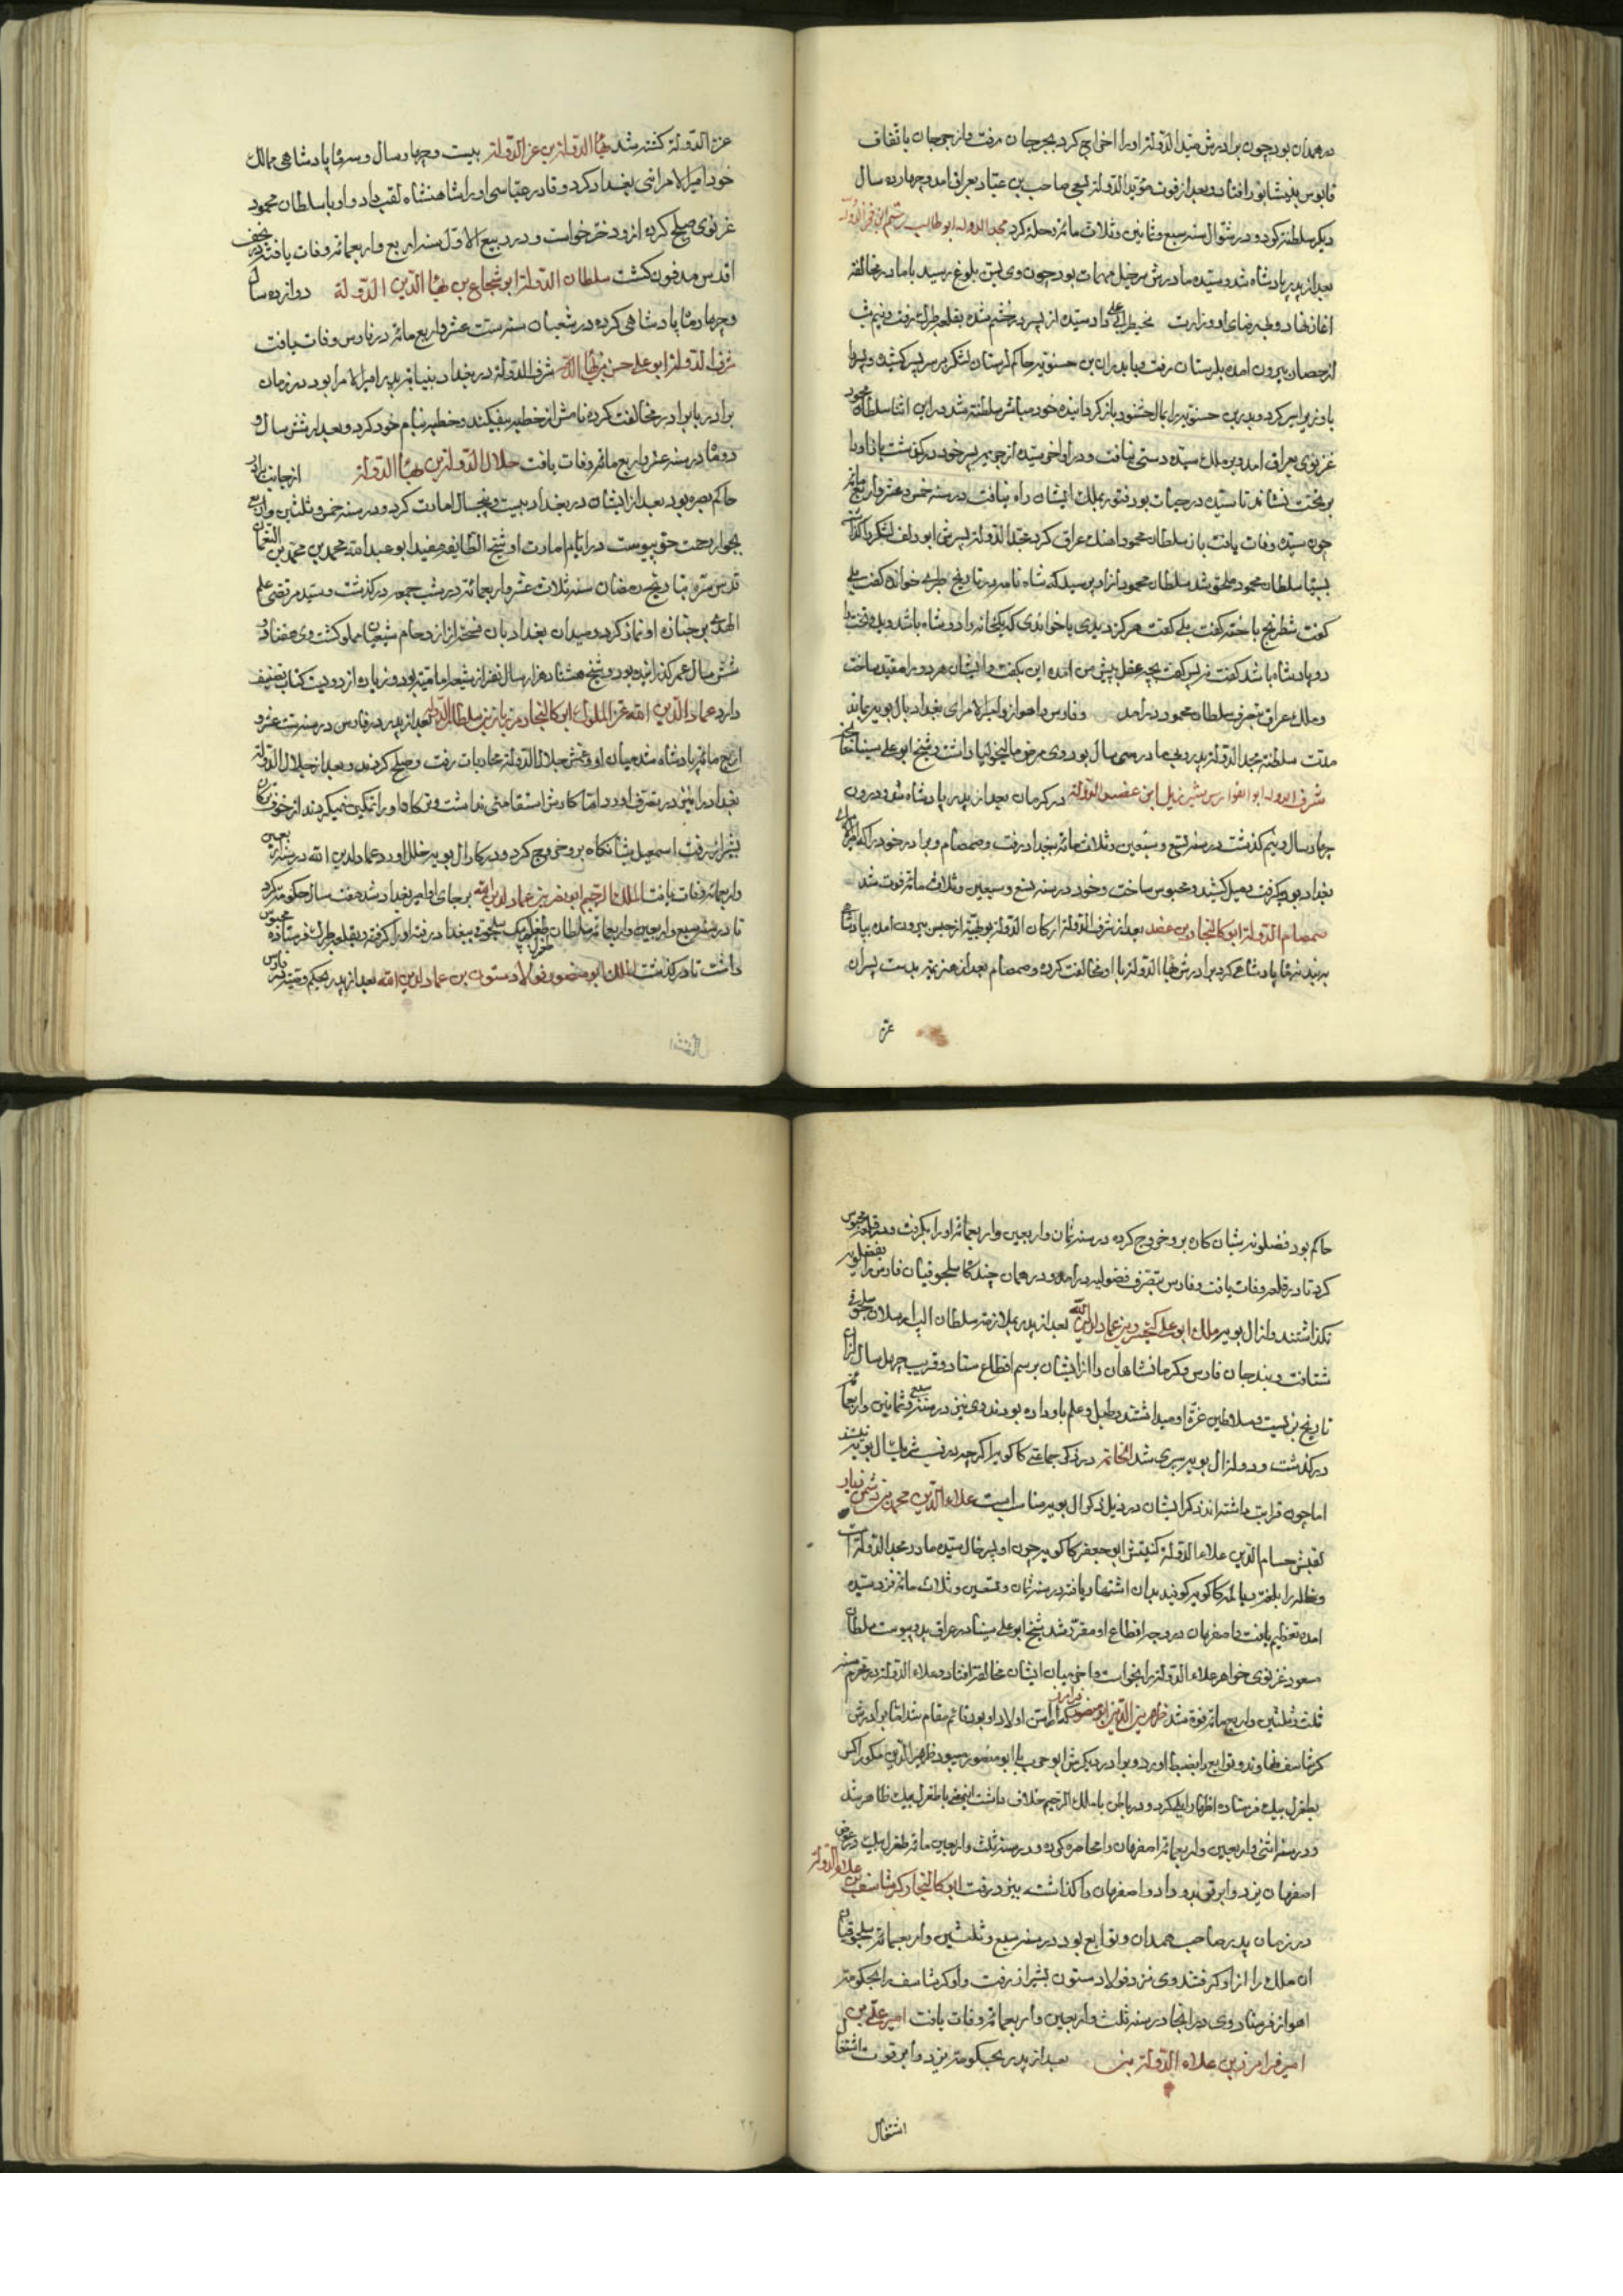 در همدان بود چون برادرش مؤید الدوله او را اخراج کرد بجرجان رفت و از جرجان باتفاق
قابوس بنیشابور افتاد و بعد از فوت مؤید الدوله بسعی صاحب بن عباد بعراق آمد و چهارده سال
دیگر سلطنت کرد و در شوال سنه سبع و ثمانین و ثلاث مائه رحلت کرد مجد الدوله ابو طالب رستم ابن فخر الدوله
بعد از پدر پادشاه شد و سیده مادرش مرخیل مهمات بود چون وی بسن بلوغ رسید با مادر مخالفت
آغاز نهاد و بی رضای او وزارت بخطیر ابی علی داد سیده از پسر در خشم شده بقلعه طبرک رفت و نیم شب
از حصار بیرون آمده بلرستان رفت و با بدر بن حسنویه حاکم لرستان لشکر بر سر پسر کشیده و پسر را
با وزیر اسیر کرد و بدر بن حسنویه را بمال خشنود باز گردانیده خود مباشر سلطنت شد در این اثنا سلطان محمود
غزنوی بعراق آمد و بر ملک سیده دستی نیافت و در اواخر سیده از جریمه پسر خود در گذشت باز او را
بر تخت نشاند تا سیده در حیات بود فتور بملک ایشان راه نیافت در سنه خمس و عشر و اربع مائه
چون سیده وفات یافت باز سلطان محمود آهنک عراق کرد مجد الدوله پسرش ابو دلف لشکر
سلطان محمود ملحق شد سلطان محمود از او پرسید که شاه نامه و تاریخ طبری خوانده گفت بلی
گفت شطرنج باخته گفت بلی گفت هرگز دیدی یا خواندی که در یکخانه دو شاه باشد و یا در تخت
دو پادشاه باشد گفت نی پس گفت بچه عقل پیش من آمده این بگفت و ایشان هر دو را مقید ساخت
و ملک عراق بتصرف سلطان محمود در آمد و فارس و اهواز و امیر الامرای بغداد بآل بویه بماند
مدت سلطنت مجد الدوله بی پدر و مادر سی سال بود وی مرض مالیخولیا داشت و شیخ ابو علی سینا
شرف الدوله ابو الفوارس شیر زیل ابن عضد الدوله در کرمان بعد از پدر پادشاه شد و درون
چهار سال و نیم گذشت در سنه تسع و سبعین و ثلاث مائه ببغداد رفت و صمصام و برادر خود را که امیر
بغداد بود بگرفت و میل کشید و محبوس ساخت و خود در سنه تسع و سبعین و ثلاث مائه فوت شد
صمصام الدوله ابو کالنجار بن عضد بعد از شرف الدوله ارکان الدوله بویهیه از حبس بیرون آمده بپادشاهی
پادشاهی کرد برادرش بهاء الدوله با او مخالفت کرده و صمصام بعد از هزیمت بدست پسران
عز
عز الدوله کشته شد بهاء الدوله بن عز الدوله بیست و چهار سال و سه ماه پادشاهی ممالک
خود امیر الامرائی بغداد کرد و قادر عباسی او را شاهنشاه لقب داد و او با سلطان محمود
غزنوی صلح کرده از و دختر خواست و در ربیع الاول سنه اربع و اربعمائه وفات یافت در نجف
اقدس مدفون گشت سلطان الدوله ابو شجاع بن بهاء الدین الدوله دوازده سال
و چهار ماه پادشاهی کرده در شعبان سنه ست عشر و اربع مائه در فارس وفات یافت
شرف الدوله ابو علی حسن بن بهاء الدوله شرف الدوله در بغداد بنیابت پدر امیر الامرا بود در زمان
برادر با برادر مخالفت کرده نامش از خطبه بیفکند و خطبه بنام خود کرد و بعد از شش سال و
دو ماه در سنه عشر و اربع مائه وفات یافت جلال الدوله بن بهاء الدوله از جانب برادر
حاکم بصره بود بعد از ایشان در بغداد بیست و پنجسال امارت کرد و در سنه خمس و ثلثین و اربع
بجوار رحمت حق پیوست در ایام امارت او شیخ الطایفه مفید ابو عبد الله محمد بن محمد بن النعمان
قدس سره بتاریخ رمضان سنه ثلاث عشر و اربعمائه در شب جمعه در گذشت و سید مرتضی علم
الهدی بر جنازه او نماز کرد و میدان بغداد بآن فسحت از ازدحام شیعیان مملو گشت وی هفتاد و
شش سال عمر گذرانیده بود و تشیع هشتاد هزار سال نفر از شیعه امامیه بود و زیاده از دویست کتاب تصنیف
دارد عماد الدین الله عز الملوک ابی کالنجار مرزبان بن سلطان الدوله بعد از پدر در فارس در سنه ست عشر و
اربع مائه پادشاه شد میان او و عمش جلال الدوله محاربات رفت و صلح کردند و بعد از جلال الدوله
بغداد را نیز در تصرف آورد و اما کارش استقامتی نداشت و ترکان او را تمکین نمیکردند از خوف ترکان
بشیراز رفت اسمعیل شبانکاه بر و خروج کرد و در کار آل بویه خلل آورد و عماد لدین الله در سنه اربعین
و اربعمائه وفات یافت الملک الرحیم ابو نصر بن عماد لدین الله بر جای او امیر بغداد شد هفت سال حکومت کرد
تا در سنه سبع و اربعین و اربعمائه سلطان طغرل بیک سلجوقی ببغداد رفته او را گرفته و بقلعه طبرک فرستاده محبوس
داشت تا در گذشت الملک ابو منصور فولاد ستون بن عماد لدین الله بعد از پدر بحکم وصیت در فارس
حاکم بود فضلویه شبان کاره بر و خروج کرده در سنه ثمان و اربعین و اربعمائه او را بگرفت و در قلعه محبوس
کرد تا در قلعه وفات یافت و فارس بتصرف فضلویه در آمد و در همان چند گاه سلجوقیان فارس را بفضلویه
نگذاشتند و از آل بویه ملک ابو علی کیخسرو بن عماد لدین الله بعد از پدر بملازمت سلطان الب ارسلان سلجوقی
شتافت و بندجان فارس و کرمانشاهان را از ایشان برسم اقطاع ستاد و قریب چهل سال از آن
تاریخ بزیست و سلاطین عزت او میداشتند و طبل و علم باو داده بودند وی نیز در سنه سبع و ثمانین و اربعمائه
در گذشت و دولت آل بویه سپری شد الخاتمه در ذکر جماعتی کاکویه اگر چه در نسب شریک آل بویه نیستند
اما چون قرابت داشته اند ذکر ایشان در ذیل ذکر آل بویه مناسب است علاء الدین محمد بن دشمن زیار
لقبش حسام الدین علاء الدوله کنیتش ابو جعفر کاکویه چون او پسر خال سیده مادر مجد الدوله است
و خال را بلغت دیالمه کاکویه گویند بدان اشتهار یافته در سنه ثمان و تسعین و ثلاث مائه نزد سیده
آمده تعظیم یافت و اصفهان در وجه اقطاع او مقرر شد شیخ ابو علی سینا در عراق بدو پیوست سلطان
مسعود غزنوی خواهر علاء الدوله را بخواست و آخر میان ایشان مخالفت افتاد و علاء الدوله در محرم سنه
ثلث و ثلثین و اربع مائه فوت شد ظهیر الدین ابو منصور فرامرز که اسن اولاد او بود قائم مقام شد اما برادرش
کرشاسف نهاوند و توابع را بضبط آورد و برادر دیگرش ابو حرب با ابو منصور ظهیر الدین مکرر کس
بطغرل بیک فرستاده اظهار ایلی کرد و در باطن با ملک الرحیم خلاف داشت اینمعنی با طغرل بیک ظاهر شد
و در سنه اثنی و اربعین و اربعمائه اصفهان را محاصره کرده و در سنه ثلث و اربعین مائه طغرل بیک در عوض
اصفهان یزد و ابرقوه بدو داد و اصفهان را گذاشت بیزد رفت ابو کالنجار کرشاسف بن علاء الدوله
در زمان پدر صاحب همدان و توابع بود در سنه سبع و ثلثین و اربعمائه سلجوقیان
آن ملک را از او گرفتند وی نزد فولاد ستون بشیراز رفت و او کرشاسف را بحکومت
اهواز فرستاد وی در آنجا در سنه ثلث و اربعین و اربعمائه وفات یافت امیر علی بن
امیر فرامرز بن علاء الدوله بعد از پدر بحکومت یزد و ابرقوه اشتغال
اشتغال